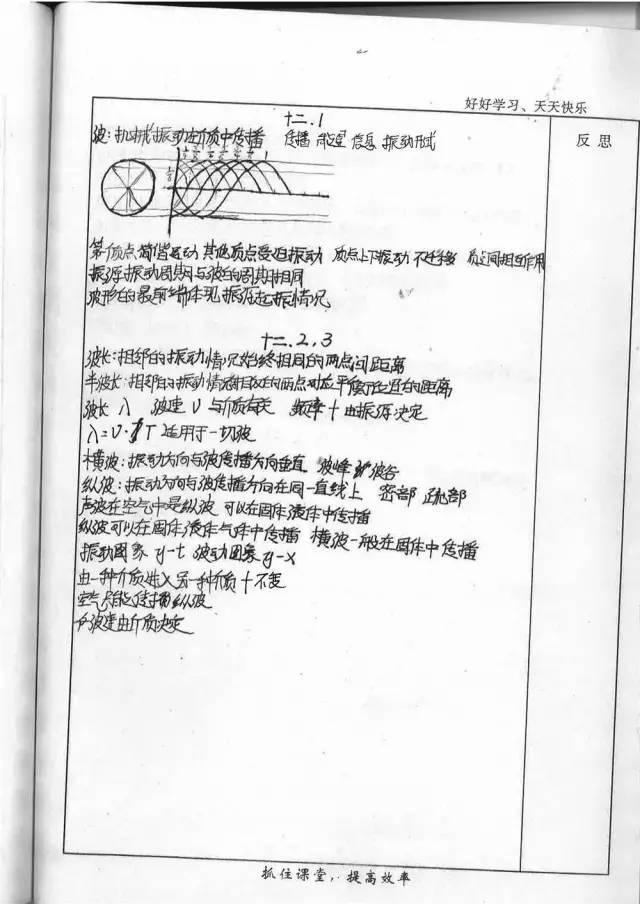 好好学习、天天快乐
反思
十二.1
波：机械振动在介质中传播 传播 能量 信息 振动形式
第一个质点简谐运动 其他质点受迫振动 质点上下振动 不迁移 质点间相互作用
振源振动周期与波的周期相同
波形的最前端体现振源起振情况
十二.2,3
波长：相邻的振动情况始终相同的两点间距离
半波长：相邻的振动情况相反的两点对应平衡位置的距离
波长 λ 波速 υ 与介质有关 频率 f 由振源决定
λ=υ·T 适用于一切波
横波：振动方向与波传播方向垂直 波峰 波谷
纵波：振动方向与波传播方向在同一直线上 密部 疏部
声波在空气中是纵波 可以在固体液体中传播
纵波可以在固体液体气体中传播 横波一般在固体中传播
振动图象 y-t 波动图象 y-x
由一种介质进入另一种介质 f 不变
空气只能传播纵波
波速由介质决定
抓住课堂，提高效率